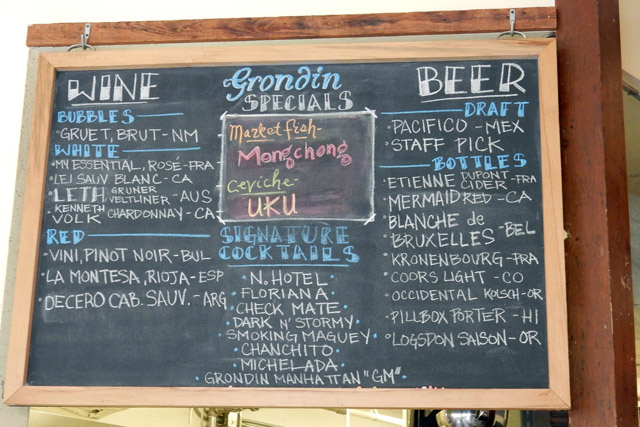 WINE
BUBBLES
GRUET, BRUT - NM
WHITE
MY ESSENTIAL, ROSÉ - FRA
LEJ SAUV BLANC - CA
LETH GRUNER VELTLINER - AUS
KENNETH VOLK CHARDONNAY - CA
RED
VINI, PINOT NOIR - BUL
LA MONTESA, RIOJA - ESP
DECERO CAB. SAUV. - ARG
Grondin
SPECIALS
Market fish -
Mongchong
Ceviche -
UKU
SIGNATURE
COCKTAILS
N. HOTEL
FLORIANA
CHECK MATE
DARK N' STORMY
SMOKING MAGUEY
CHANCHITO
MICHELADA
GRONDIN MANHATTAN "GM"
BEER
DRAFT
PACIFICO - MEX
STAFF PICK
BOTTLES
ETIENNE DUPONT CIDER - FRA
MERMAID RED - CA
BLANCHE de
BRUXELLES - BEL
KRONENBOURG - FRA
COORS LIGHT - CO
OCCIDENTAL KOLSCH - OR
PILLBOX PORTER - HI
LOGSDON SAISON - OR